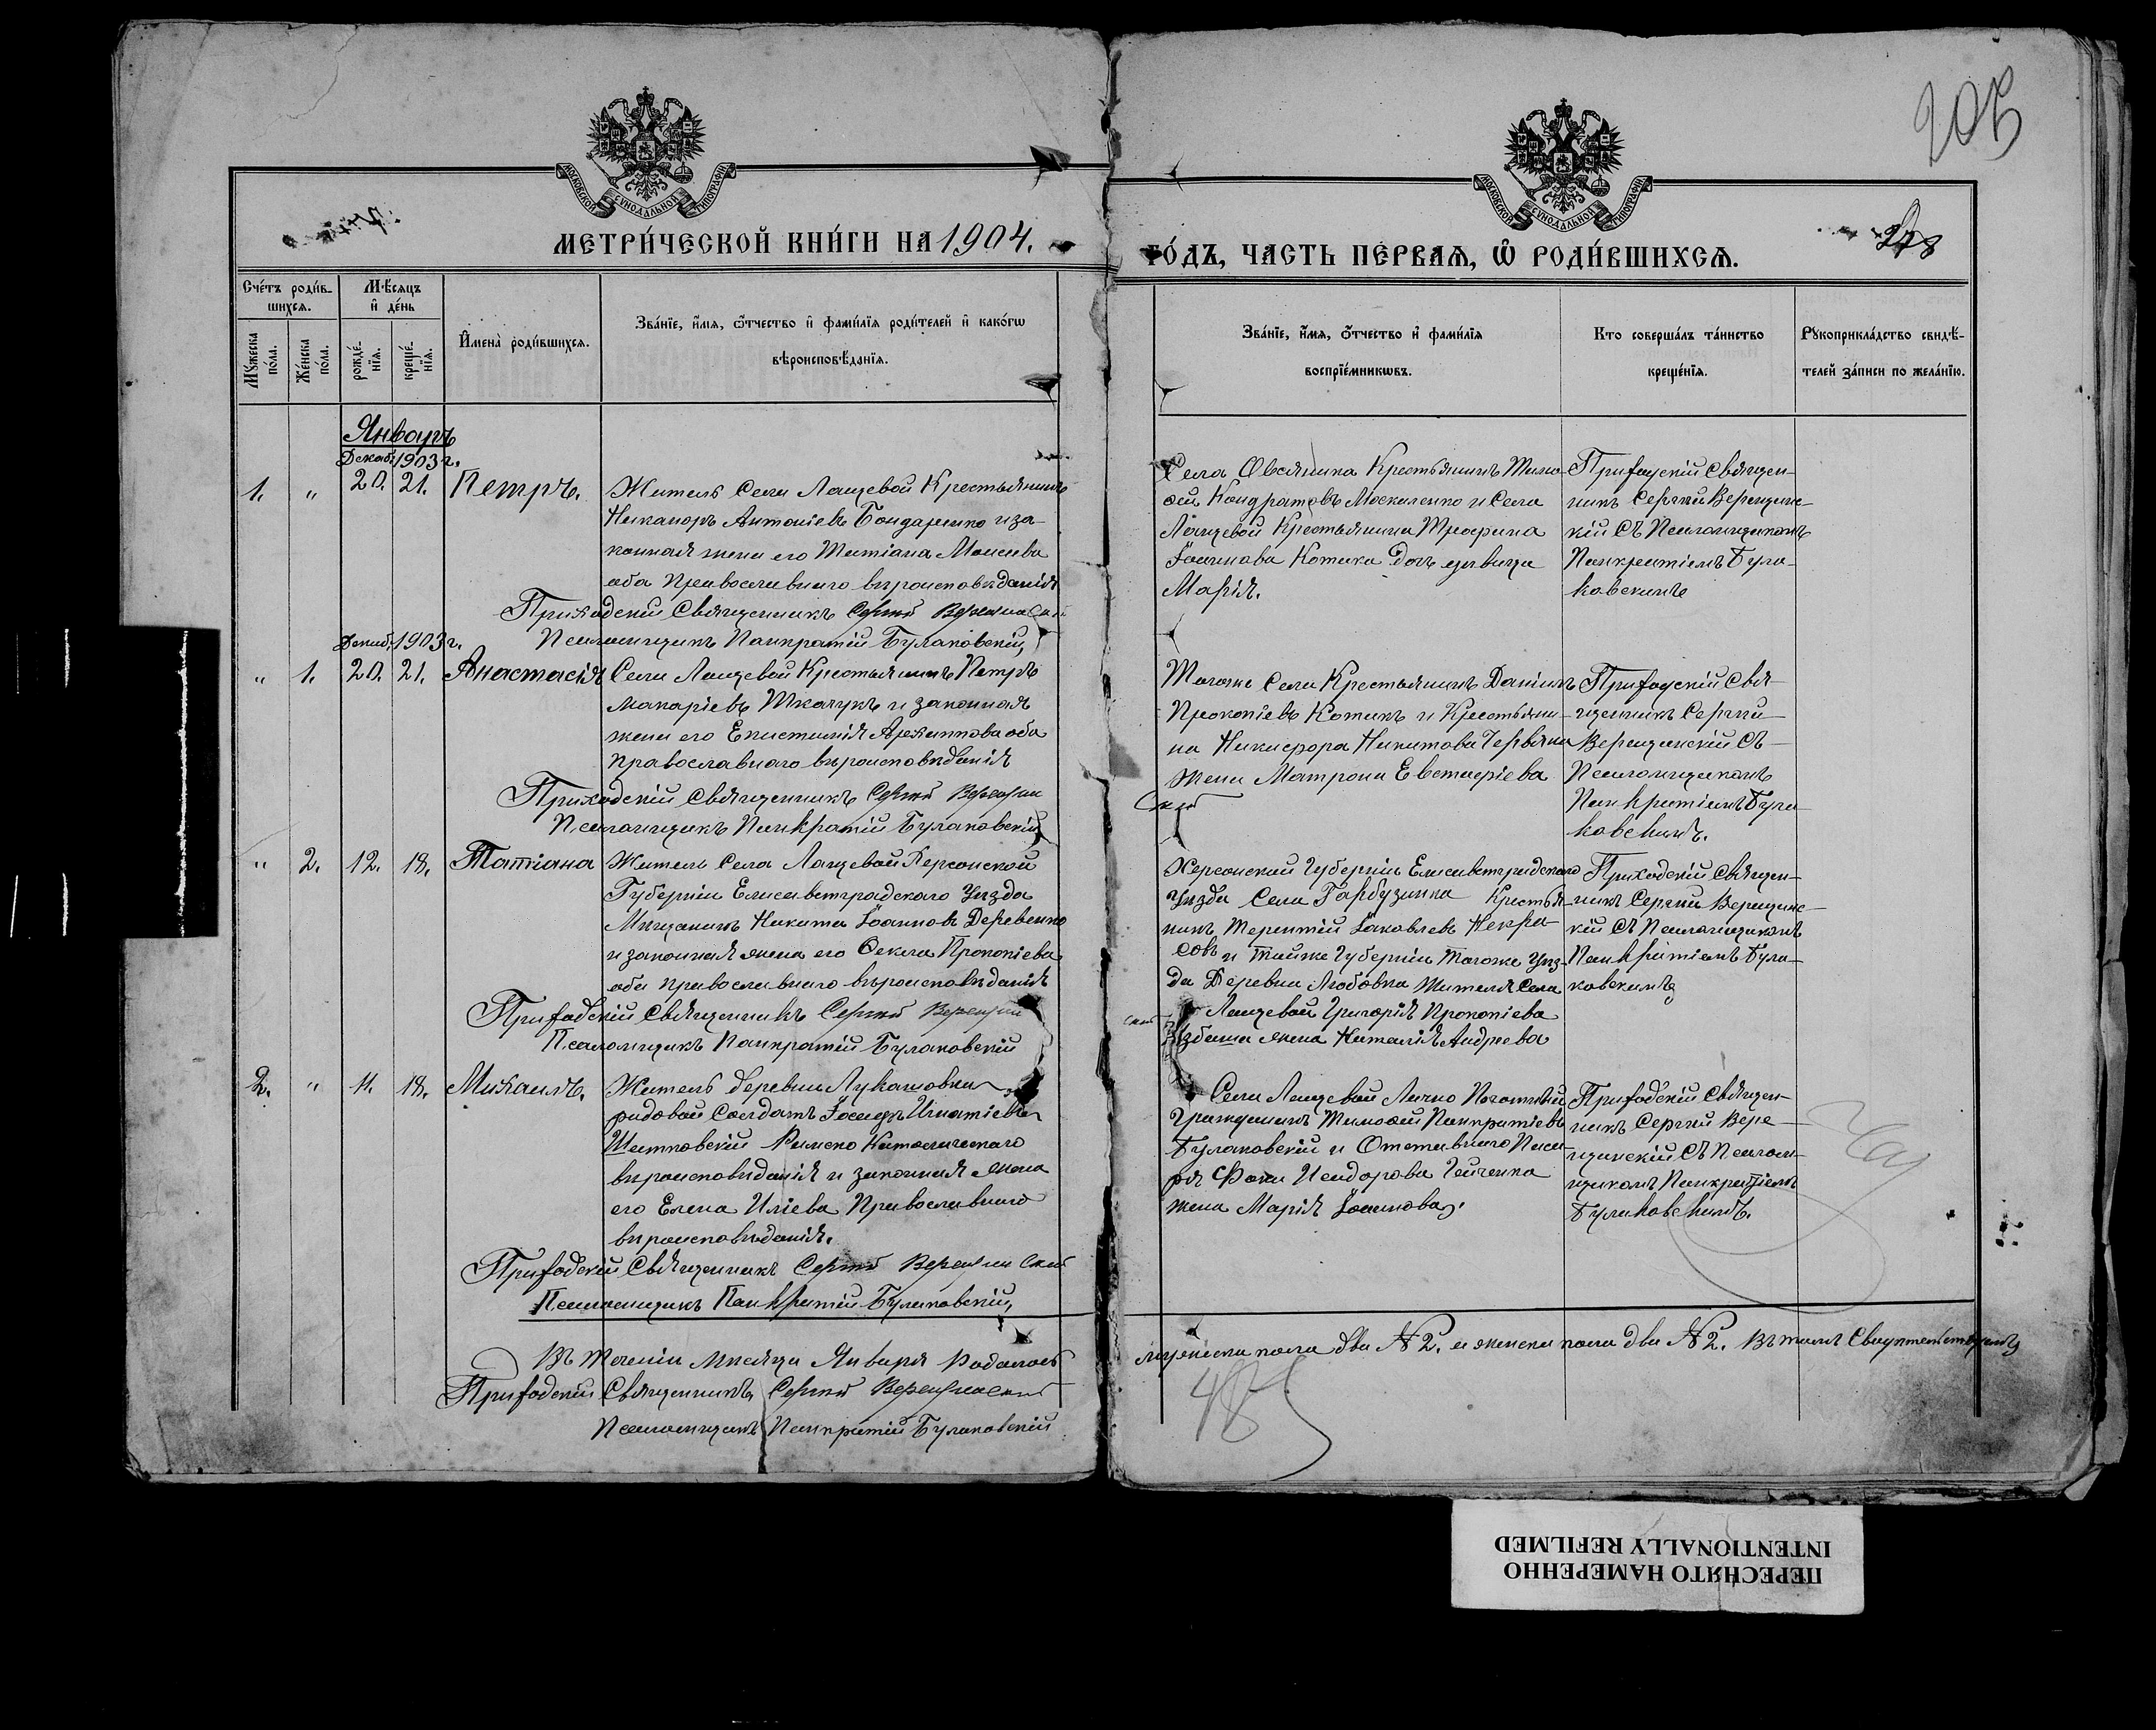 205
МОСКОВСКОЙ СѴНОДАЛЬНОЙ ТИПОГРАФІИ
МОСКОВСКОЙ СѴНОДАЛЬНОЙ ТИПОГРАФІИ
МЕТРИ́ЧЕСКОЙ КНИ́ГИ НА 1904.
ГО́ДЪ, ЧАСТЬ ПЕ́РВАѦ, Ѿ РОДИ́ВШИХСѦ.
278
Сче́тъ роди́в-
шихсѧ.
Мꙋ́жеска по́ла.
Же́нска по́ла.
Мѣ́сяцъ
и҆ де́нь
рожде́-
нїѧ.
креще́-
нїѧ.
И҆мена̀ роди́вшихсѧ.
Зва́нїе, и҆́мѧ, ѻ҆́тчество и҆ фами́лїѧ роди́телей и҆ како́гѡ
вѣроисповѣ́данїѧ.
Зва́нїе, и҆́мѧ, ѻ҆́тчество и҆ фами́лїѧ
воспрїе́мникѡвъ.
Кто соверша́лъ та́инство
креще́нїѧ.
Рꙋкоприкла́дство свидѣ́-
телей за́писи по жела́нїю.
Январь
Декаб. 1903 г.
1. " 20. 21. Петръ.
Житель Села Лащевой Крестьянинъ
Никаноръ Антоніевъ Бондаренко и за-
конная жена его Татіана Моисеева
оба Православнаго вѣроисповѣданія
Приходскій Священникъ Сергій Верещинскій
Псаломщикъ Панкратій Булаковскій
Села Овсяника Крестьянинъ Тимо-
фей Кондратовъ Москаленко и Села
Лащевой Крестьянина Трофима
Іоаннова Котика дочь девица
Марія.
Приходскій Священ-
никъ Сергій Верещинс-
кій съ Псаломщикомъ
Панкратіемъ Була-
ковскимъ
Декаб. 1903 г.
" 1. 20. 21. Анастасія
Села Лащевой Крестьянинъ Петръ
Макаріевъ Ткачукъ и законная
жена его Епистимія Архиппова оба
Православнаго вѣроисповѣданія
Приходскій Священникъ Сергій Верещин
Псаломщикъ Панкратій Булаковскій
Тогоже Села Крестьянинъ Даніилъ
Прокопіевъ Котикъ и Крестьяни-
на Никифора Никитова Червяка
жена Матрона Евстафіева
скій
Приходскій Свя-
щенникъ Сергій
Верещинскій съ
Псаломщикомъ
Панкратіемъ Була-
ковскимъ.
" 2. 12. 18. Татіана
Житель Села Лащевой Херсонской
Губерніи Елисаветградскаго Уѣзда
Мѣщанинъ Никита Іоанновъ Деревенко
и законная жена его Ѳекла Прокопіева
оба православнаго вѣроисповѣданія
Приходскій Священникъ Сергій Верещин
Псаломщикъ Панкратій Булаковскій
Херсонской Губерніи Елисаветградскаго
Уѣзда Села Гарбузинка Крестья-
нинъ Терентій Іаковлевъ Некра-
совъ и тойже Губерніи Тогоже Уѣз-
да Деревни Любовка жителя Села
Лащевой Григорія Прокопіева
жена Наталія Андреева
скій
Приходскій Священ-
никъ Сергій Верещинс-
кій съ Псаломщикомъ
Панкратіемъ Була-
ковскимъ
2. " 11. 18. Михаилъ.
Житель деревни Лукашовки
рядовой Солдатъ Іосифъ Игнатіевъ
Шатковскій Римско Католическаго
вѣроисповѣданія и законная жена
его Елена Иліева Православнаго
вѣроисповѣданія.
Приходскій Священникъ Сергій Верещинскій
Псаломщикъ Панкратій Булаковскій
Села Лащевой Лично Почетный
Гражданинъ Тимофей Панкратіевъ
Булаковскій и Отставнаго Писа-
ря Фоки Исидорова
жена Марія Іоаннова.
Приходскій Священ-
никъ Сергій Вере-
щинскій съ Псалом-
щикомъ Панкратіемъ
Булаковскимъ.
Въ теченіи мѣсяца Января родилось
мужеска пола два № 2. и женска пола два № 2. Въ томъ Свидѣтельствуемъ
Приходскій Священникъ Сергій Верещинскій
Псаломщикъ Панкратій Булаковскій
ПЕРЕСНЯТО НАМЕРЕННО
INTENTIONALLY REFILMED